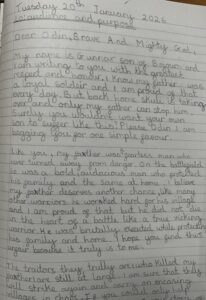 Tuesday 20th January 2026
LO: audience and purpose
Dear Odin, Brave And Mighty God,
My name is Gunnar son of Bogun and
I am writing to you with the greatest
respect and honour, I know my father was
a loyal soldier and I am proud of that
every day but back home while is taking
over and only my father can stop him.
Surely you wouldn't want your own
son to suffer like this! Please Odin I am
begging you for one simple favour.
Like you, my father was fearless man who
never turned away from danger. On the battlefield
he was a bold, audacious man who protected
his family and the same at home. I believe
my father deserves another chance like many
other warriors. He worked hard for his village
and I am proud of that but he did not die
in the heart of a battle like a true viking
warrior. He was brutally, executed while protecting
his family and home. I hope you find this
unfair because it truly is to me.
The traitors they, truly are who killed my
father are still at large. I am sure that they
will strike again and carry on encasing
villages in chaos. If you could only help